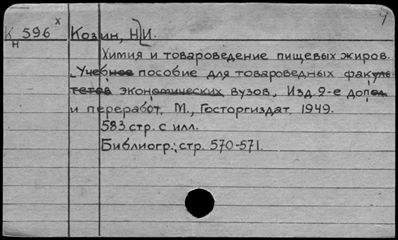 К 596 x Козин, Н.И.
н
Химия и товароведение пищевых жиров.
Учебное пособие для товароведных факуль-
тетов экономических вузов. Изд 2-е допол.
и переработ. М., Госторгиздат, 1949.
583 стр. с илл.
Библиогр.: стр. 570-571.